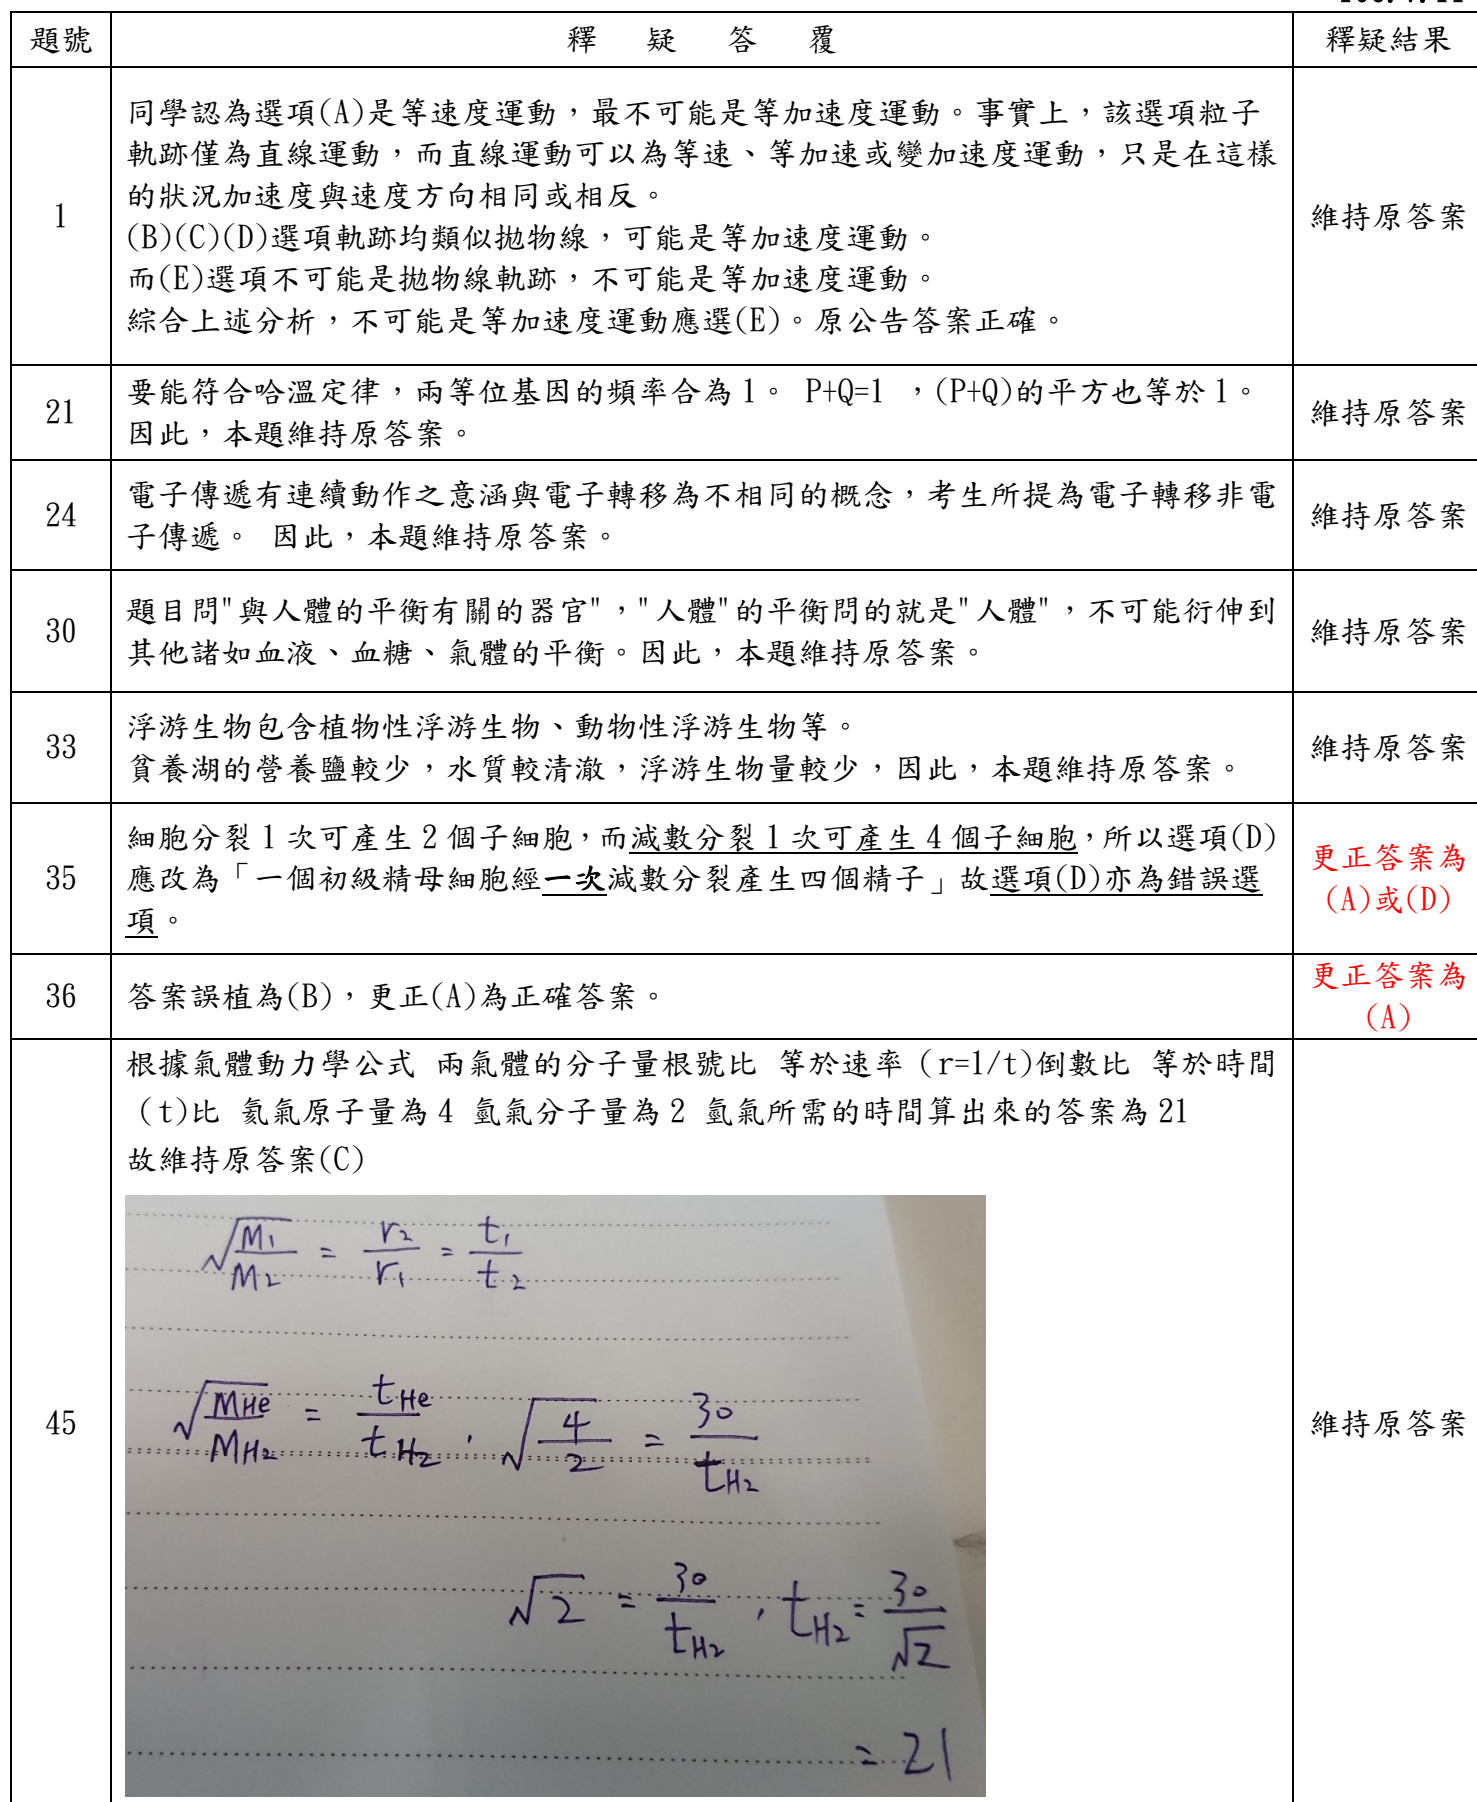 題號 釋疑答覆 釋疑結果
1
同學認為選項(A)是等速度運動，最不可能是等加速度運動。事實上，該選項粒子
軌跡僅為直線運動，而直線運動可以為等速、等加速或變加速度運動，只是在這樣
的狀況加速度與速度方向相同或相反。
(B)(C)(D)選項軌跡均類似拋物線，可能是等加速度運動。
而(E)選項不可能是拋物線軌跡，不可能是等加速度運動。
綜合上述分析，不可能是等加速度運動應選(E)。原公告答案正確。
維持原答案
21
要能符合哈溫定律，兩等位基因的頻率合為 1。 P+Q=1 ，(P+Q)的平方也等於 1。
因此，本題維持原答案。
維持原答案
24
電子傳遞有連續動作之意涵與電子轉移為不相同的概念，考生所提為電子轉移非電
子傳遞。 因此，本題維持原答案。
維持原答案
30
題目問"與人體的平衡有關的器官"，"人體"的平衡問的就是"人體"，不可能衍伸到
其他諸如血液、血糖、氣體的平衡。因此，本題維持原答案。
維持原答案
33
浮游生物包含植物性浮游生物、動物性浮游生物等。
貧養湖的營養鹽較少，水質較清澈，浮游生物量較少，因此，本題維持原答案。
維持原答案
35
細胞分裂 1 次可產生 2 個子細胞，而減數分裂 1 次可產生 4 個子細胞，所以選項(D)
應改為「一個初級精母細胞經一次減數分裂產生四個精子」故選項(D)亦為錯誤選
項。
更正答案為
(A)或(D)
36
答案誤植為(B)，更正(A)為正確答案。
更正答案為
(A)
45
根據氣體動力學公式 兩氣體的分子量根號比 等於速率 (r=1/t)倒數比 等於時間
(t)比 氦氣原子量為 4 氫氣分子量為 2 氫氣所需的時間算出來的答案為 21
故維持原答案(C)
√(M1/M2) = r2/r1 = t1/t2
√(MHe/MH2) = tHe/tH2 , √(4/2) = 30/tH2
√2 = 30/tH2 , tH2 = 30/√2
= 21
維持原答案